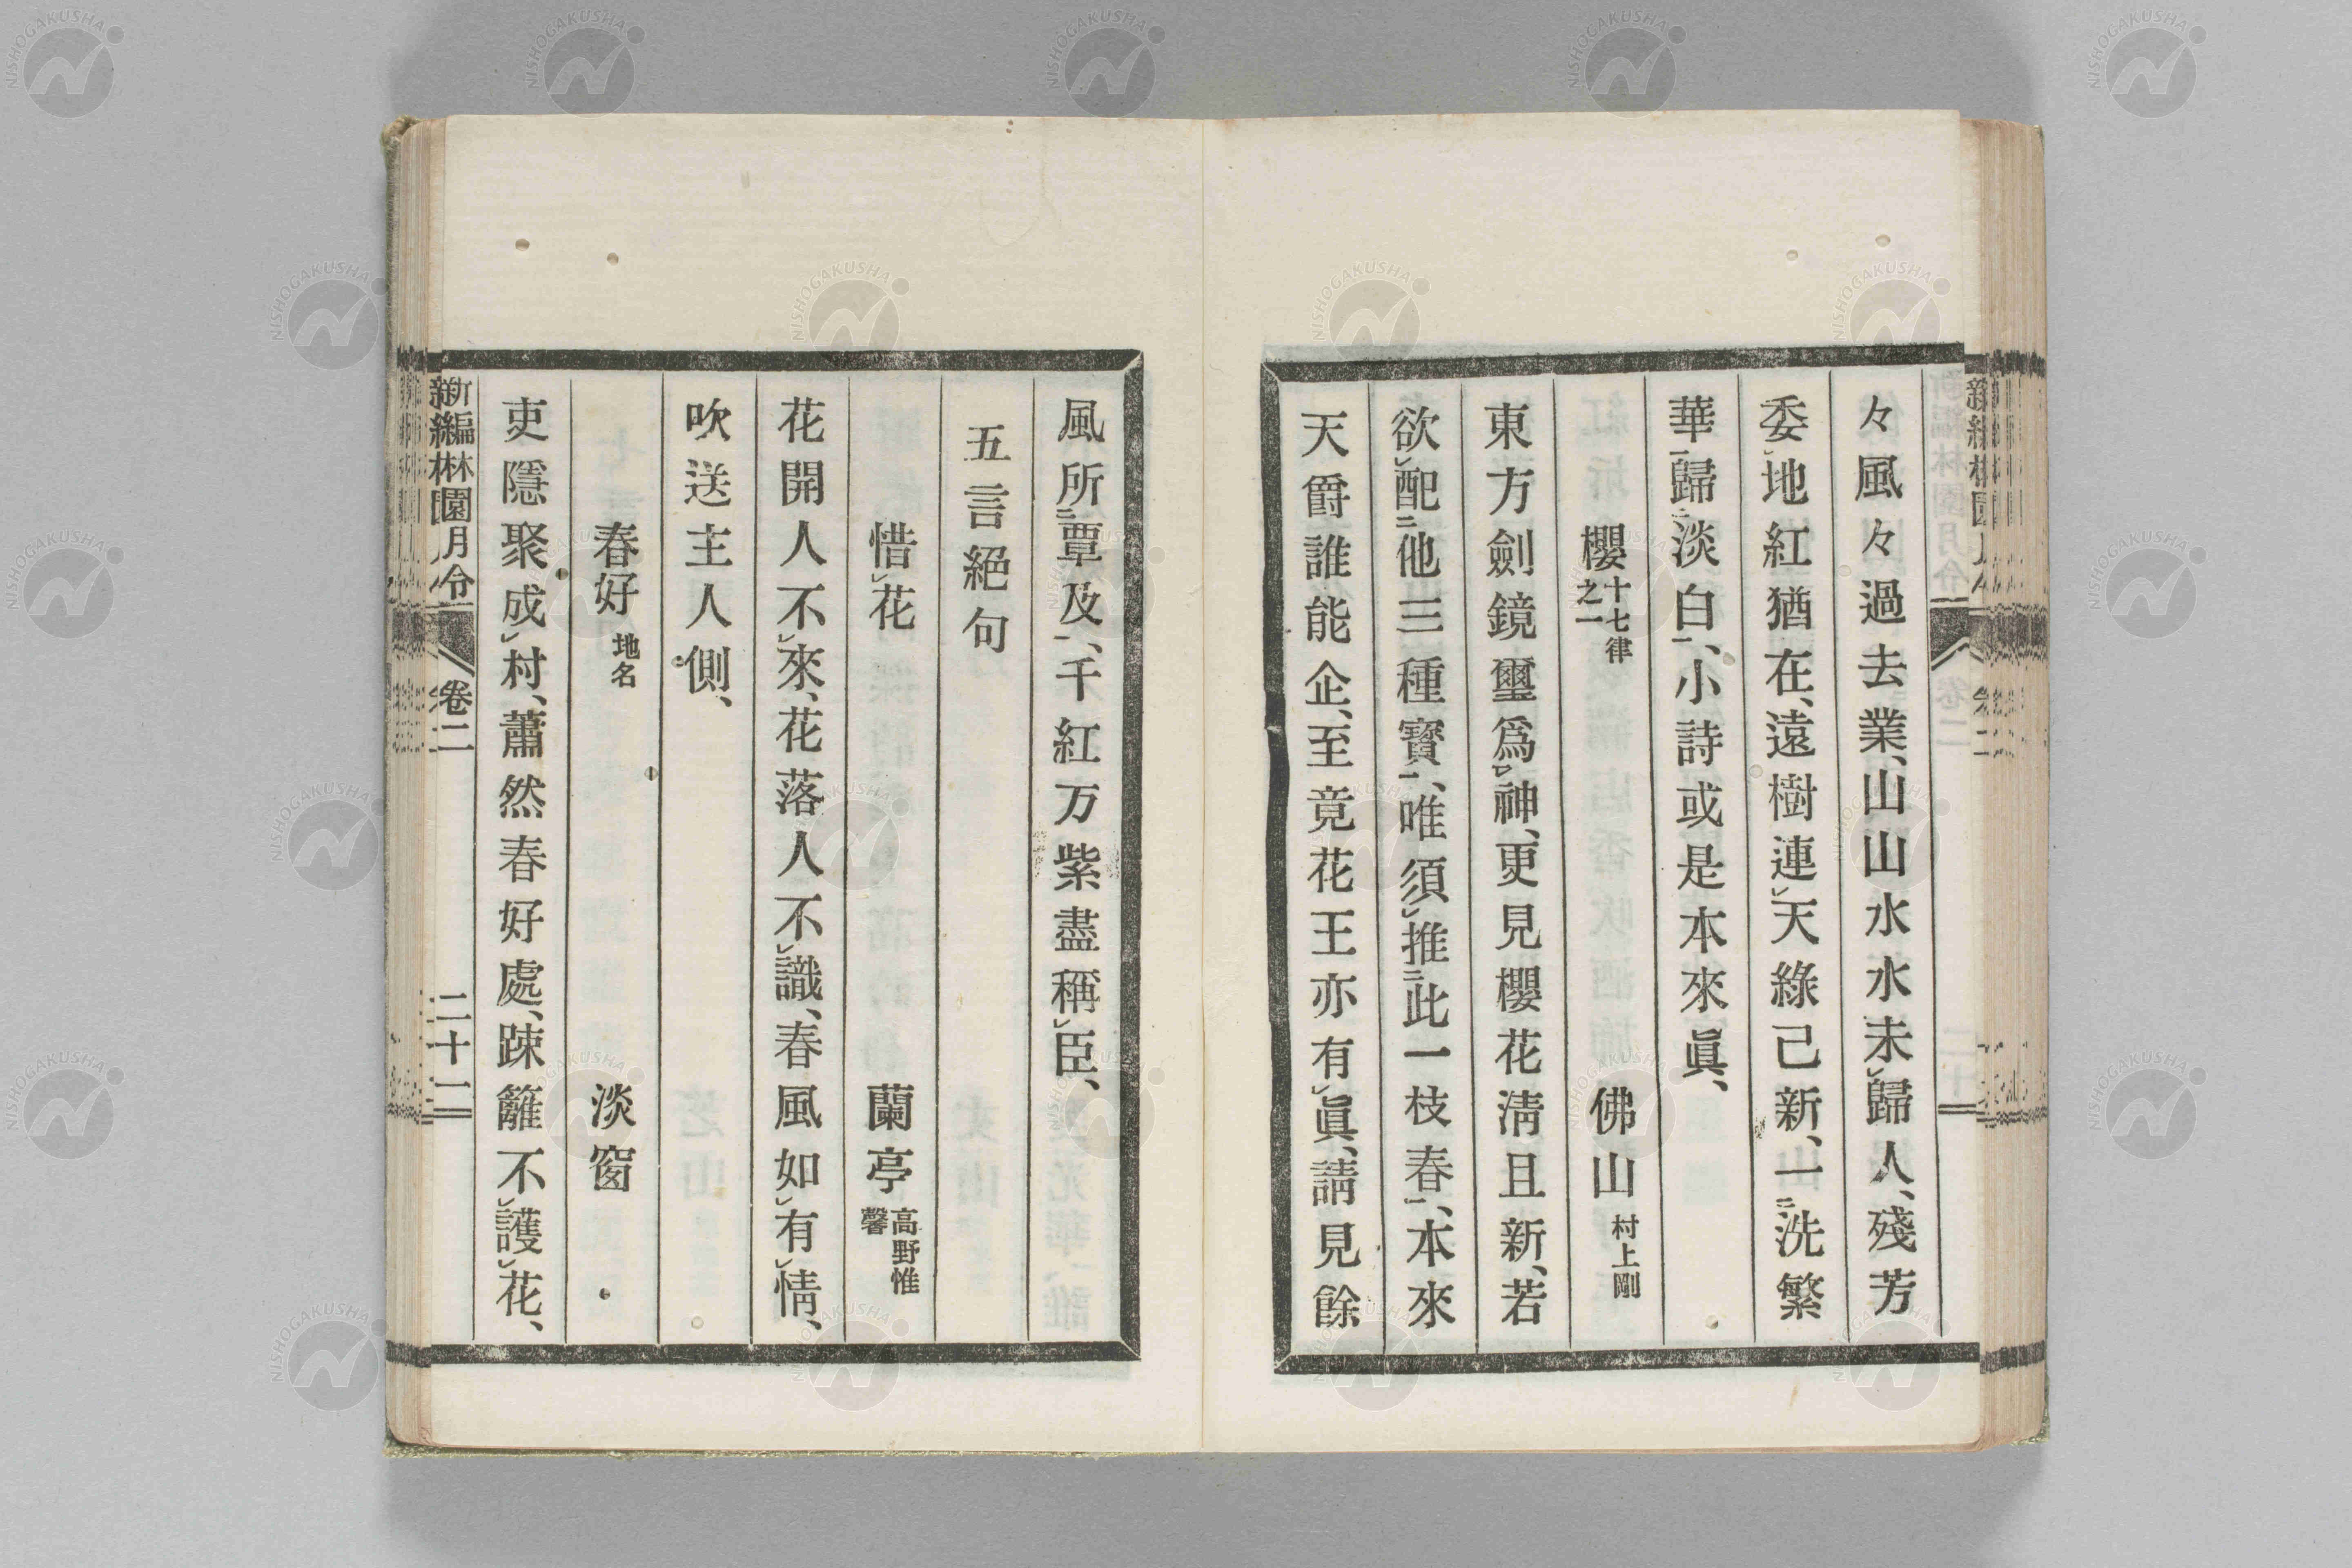 々風々過去業、山山水水未㆑歸人、殘芳
委㆑地紅猶在、遠樹連㆑天綠已新、一㆓洗繁
華㆒歸㆓淡白㆒、小詩或是本來眞、
櫻 十七律之一 佛山 村上剛
東方劍鏡璽爲㆑神、更見櫻花淸且新、若
欲㆑配㆓他三種寶㆒、唯須㆑推㆓此一枝春㆒、本來
天爵誰能企、至竟花王亦有㆑眞、請見餘
風所㆓覃及㆒、千紅万紫盡稱㆑臣、
五言絕句
惜㆑花 蘭亭 高野惟馨
花開人不㆑來、花落人不㆑識、春風如㆑有㆑情、
吹送主人側、
春好 地名 淡窗
吏隱聚成㆑村、蕭然春好處、踈籬不㆑護㆑花、
新編林園月令 卷二 二十一
NISHOGAKUSHA